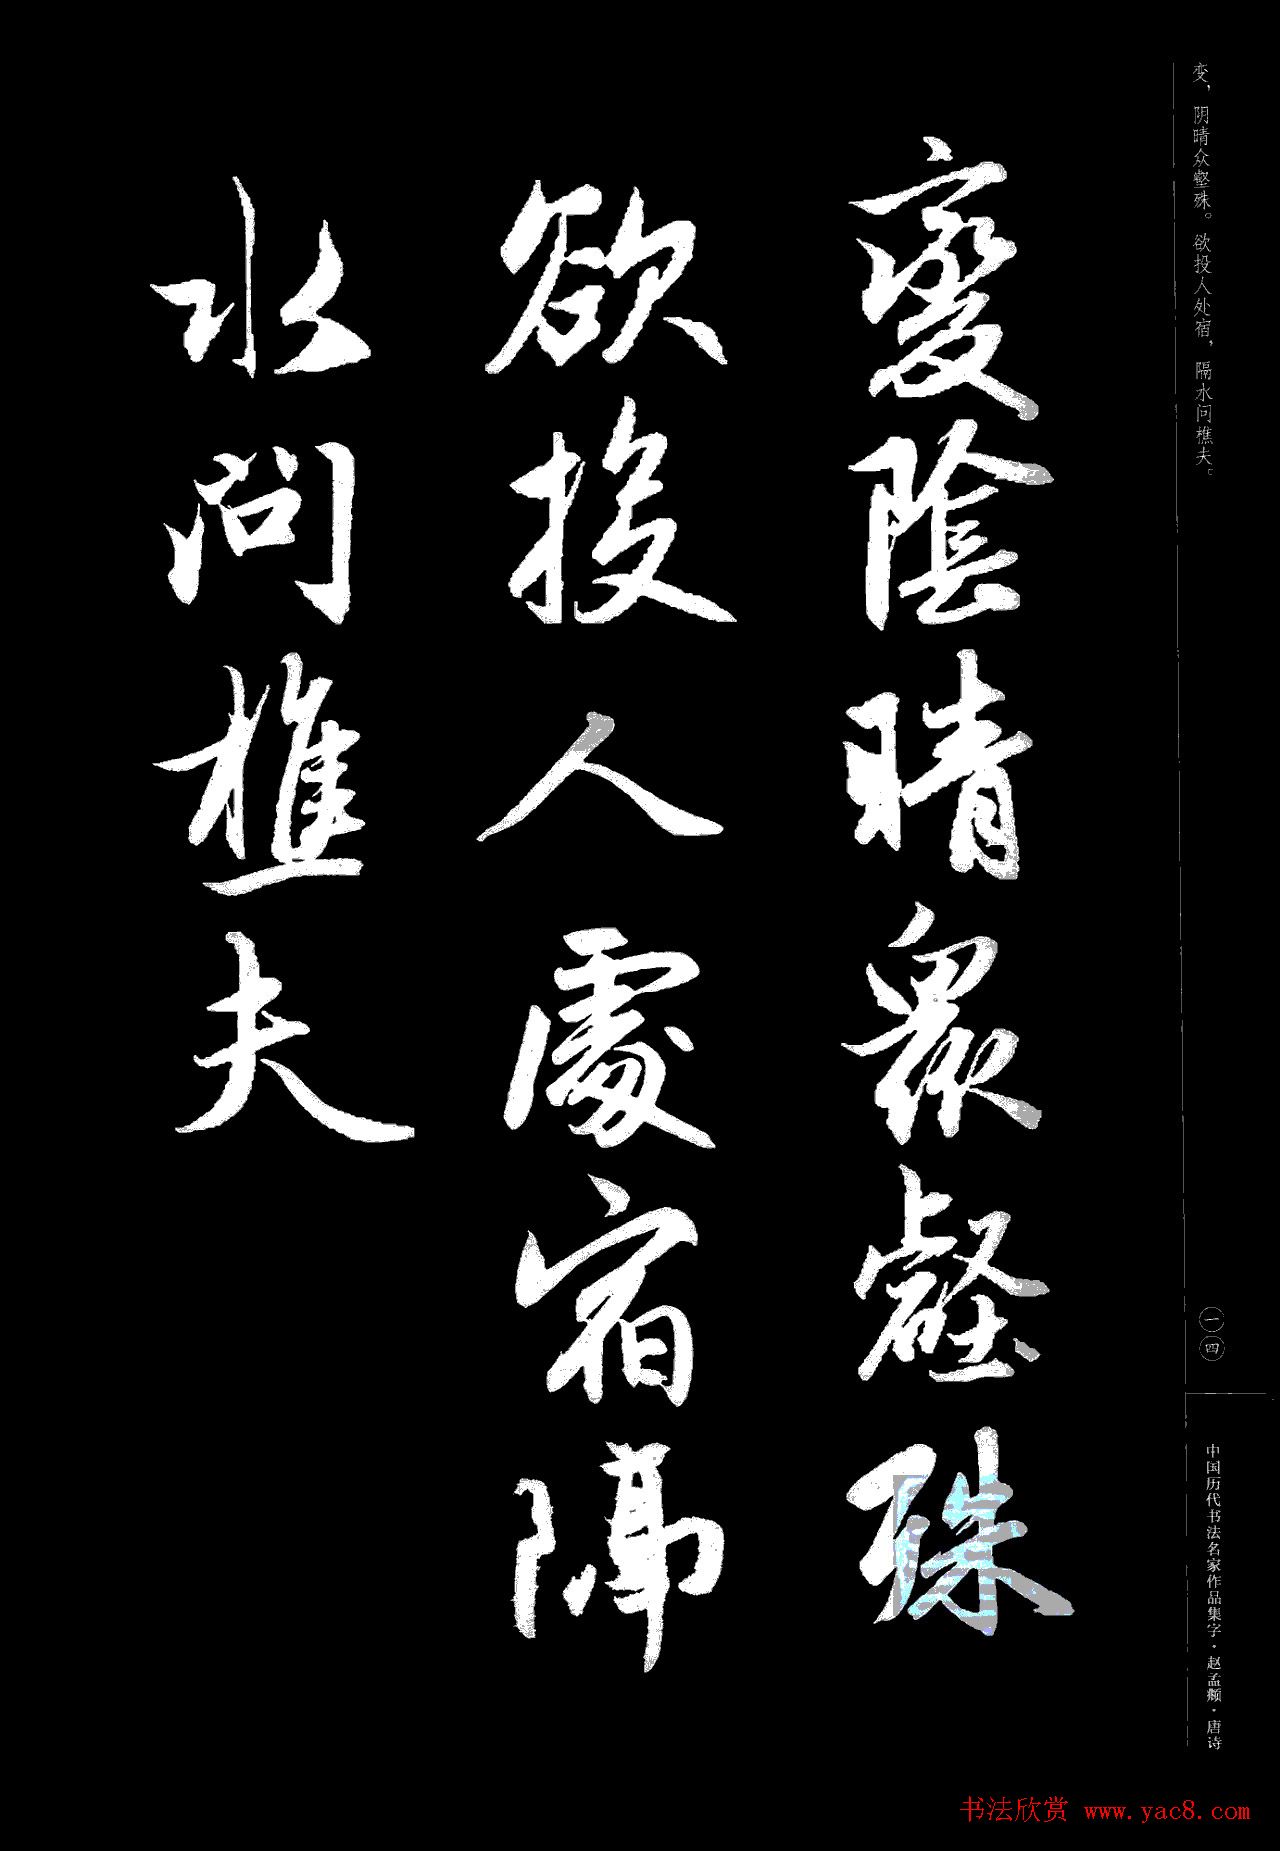 变，阴晴众壑殊。欲投人处宿，隔水问樵夫。
變陰晴衆壑殊
欲投人處宿隔
水問樵夫
一四
中国历代书法名家作品集字·赵孟頫·唐诗
书法欣赏 www.yac8.com